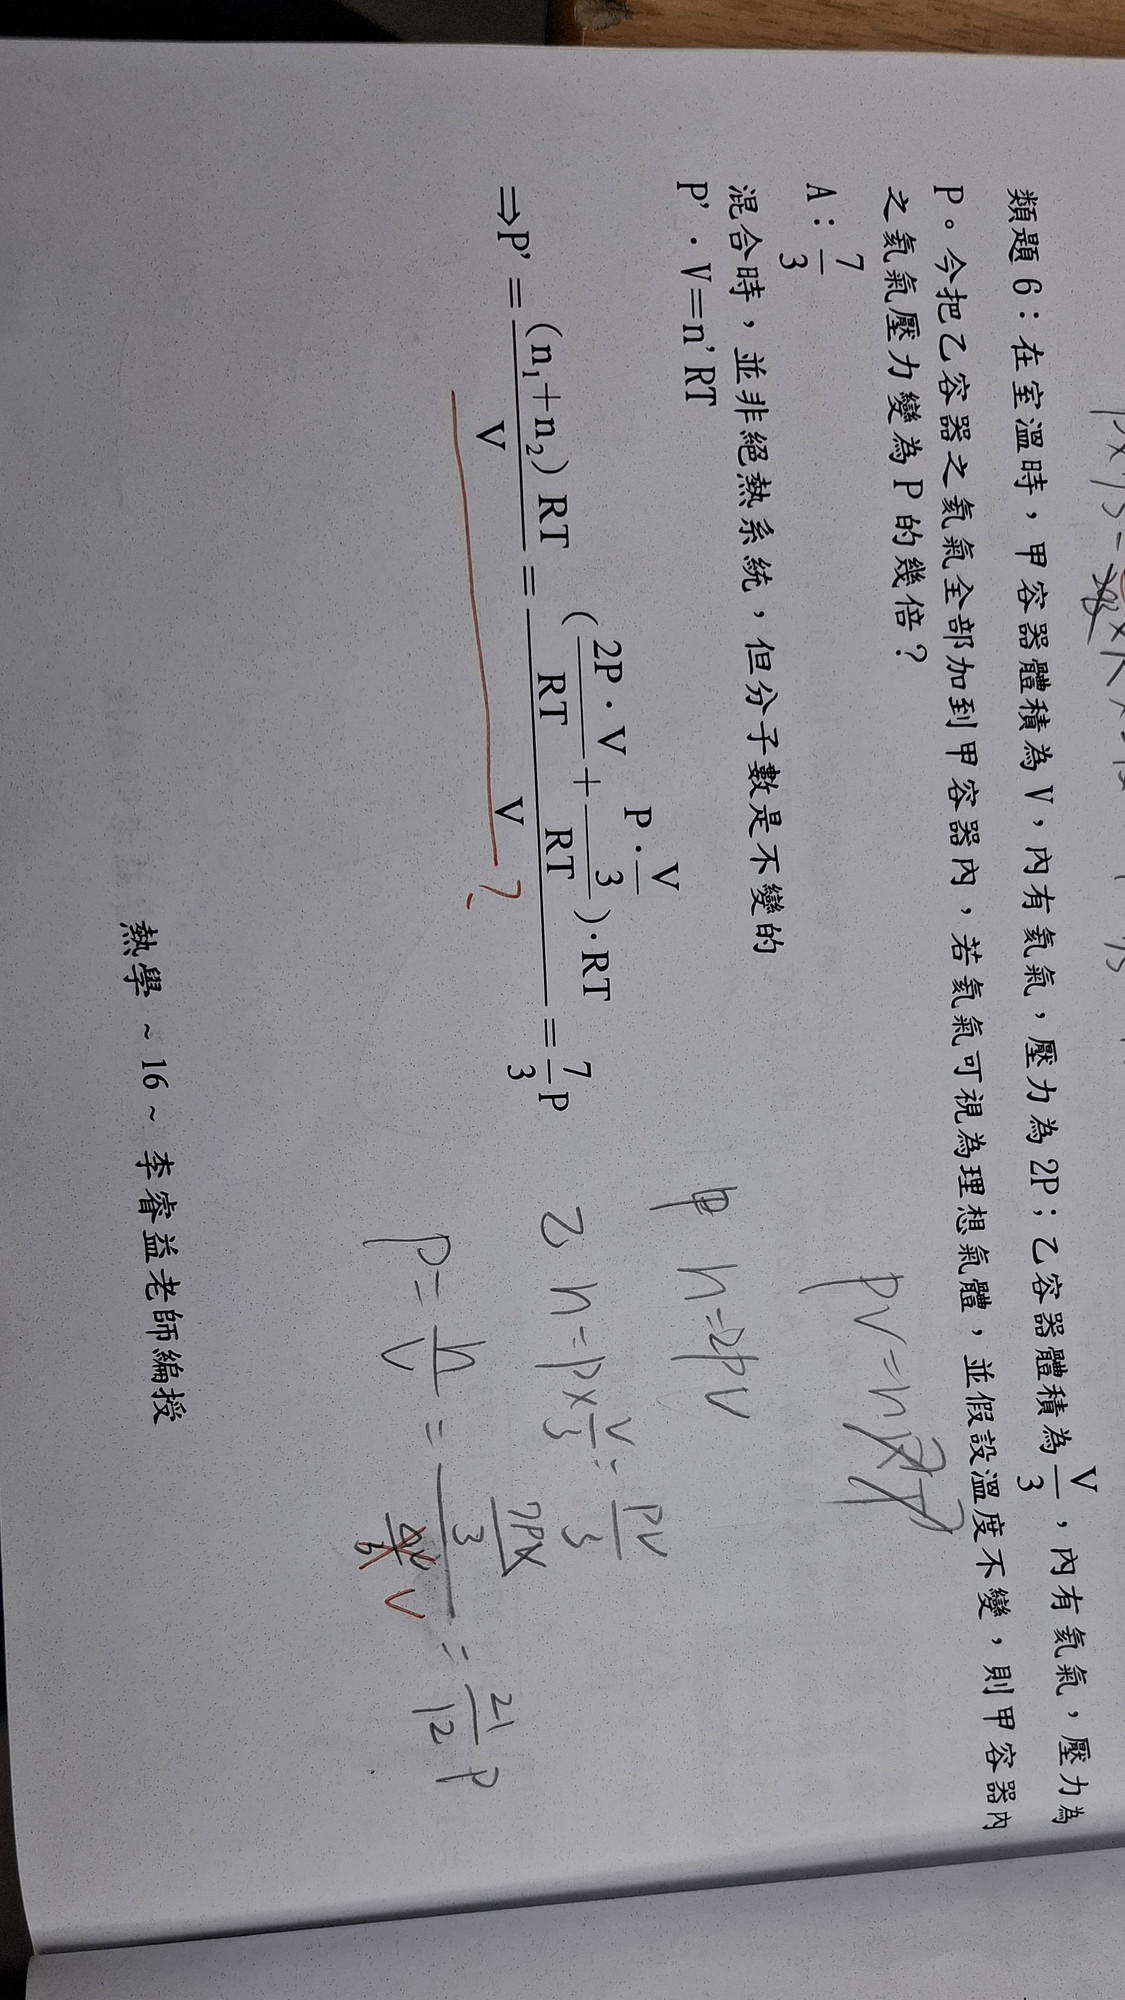 類題 6：在室溫時，甲容器體積為 V，內有氦氣，壓力為 2P；乙容器體積為 V/3，內有氦氣，壓力為
P。今把乙容器之氦氣全部加到甲容器內，若氦氣可視為理想氣體，並假設溫度不變，則甲容器內
之氦氣壓力變為 P 的幾倍？
A：7/3
混合時，並非絕熱系統，但分子數是不變的
P'．V＝n'RT
⇒P'＝(n₁＋n₂)RT/V＝(2P·V/RT＋P·V/3/RT)·RT/V＝7/3P
?
PV=nRT
甲 n=2PV
乙 n=P×V/3=PV/3
P=n/V=7PV/3/V=21/12P
熱學 ~ 16 ~ 李睿益老師編授